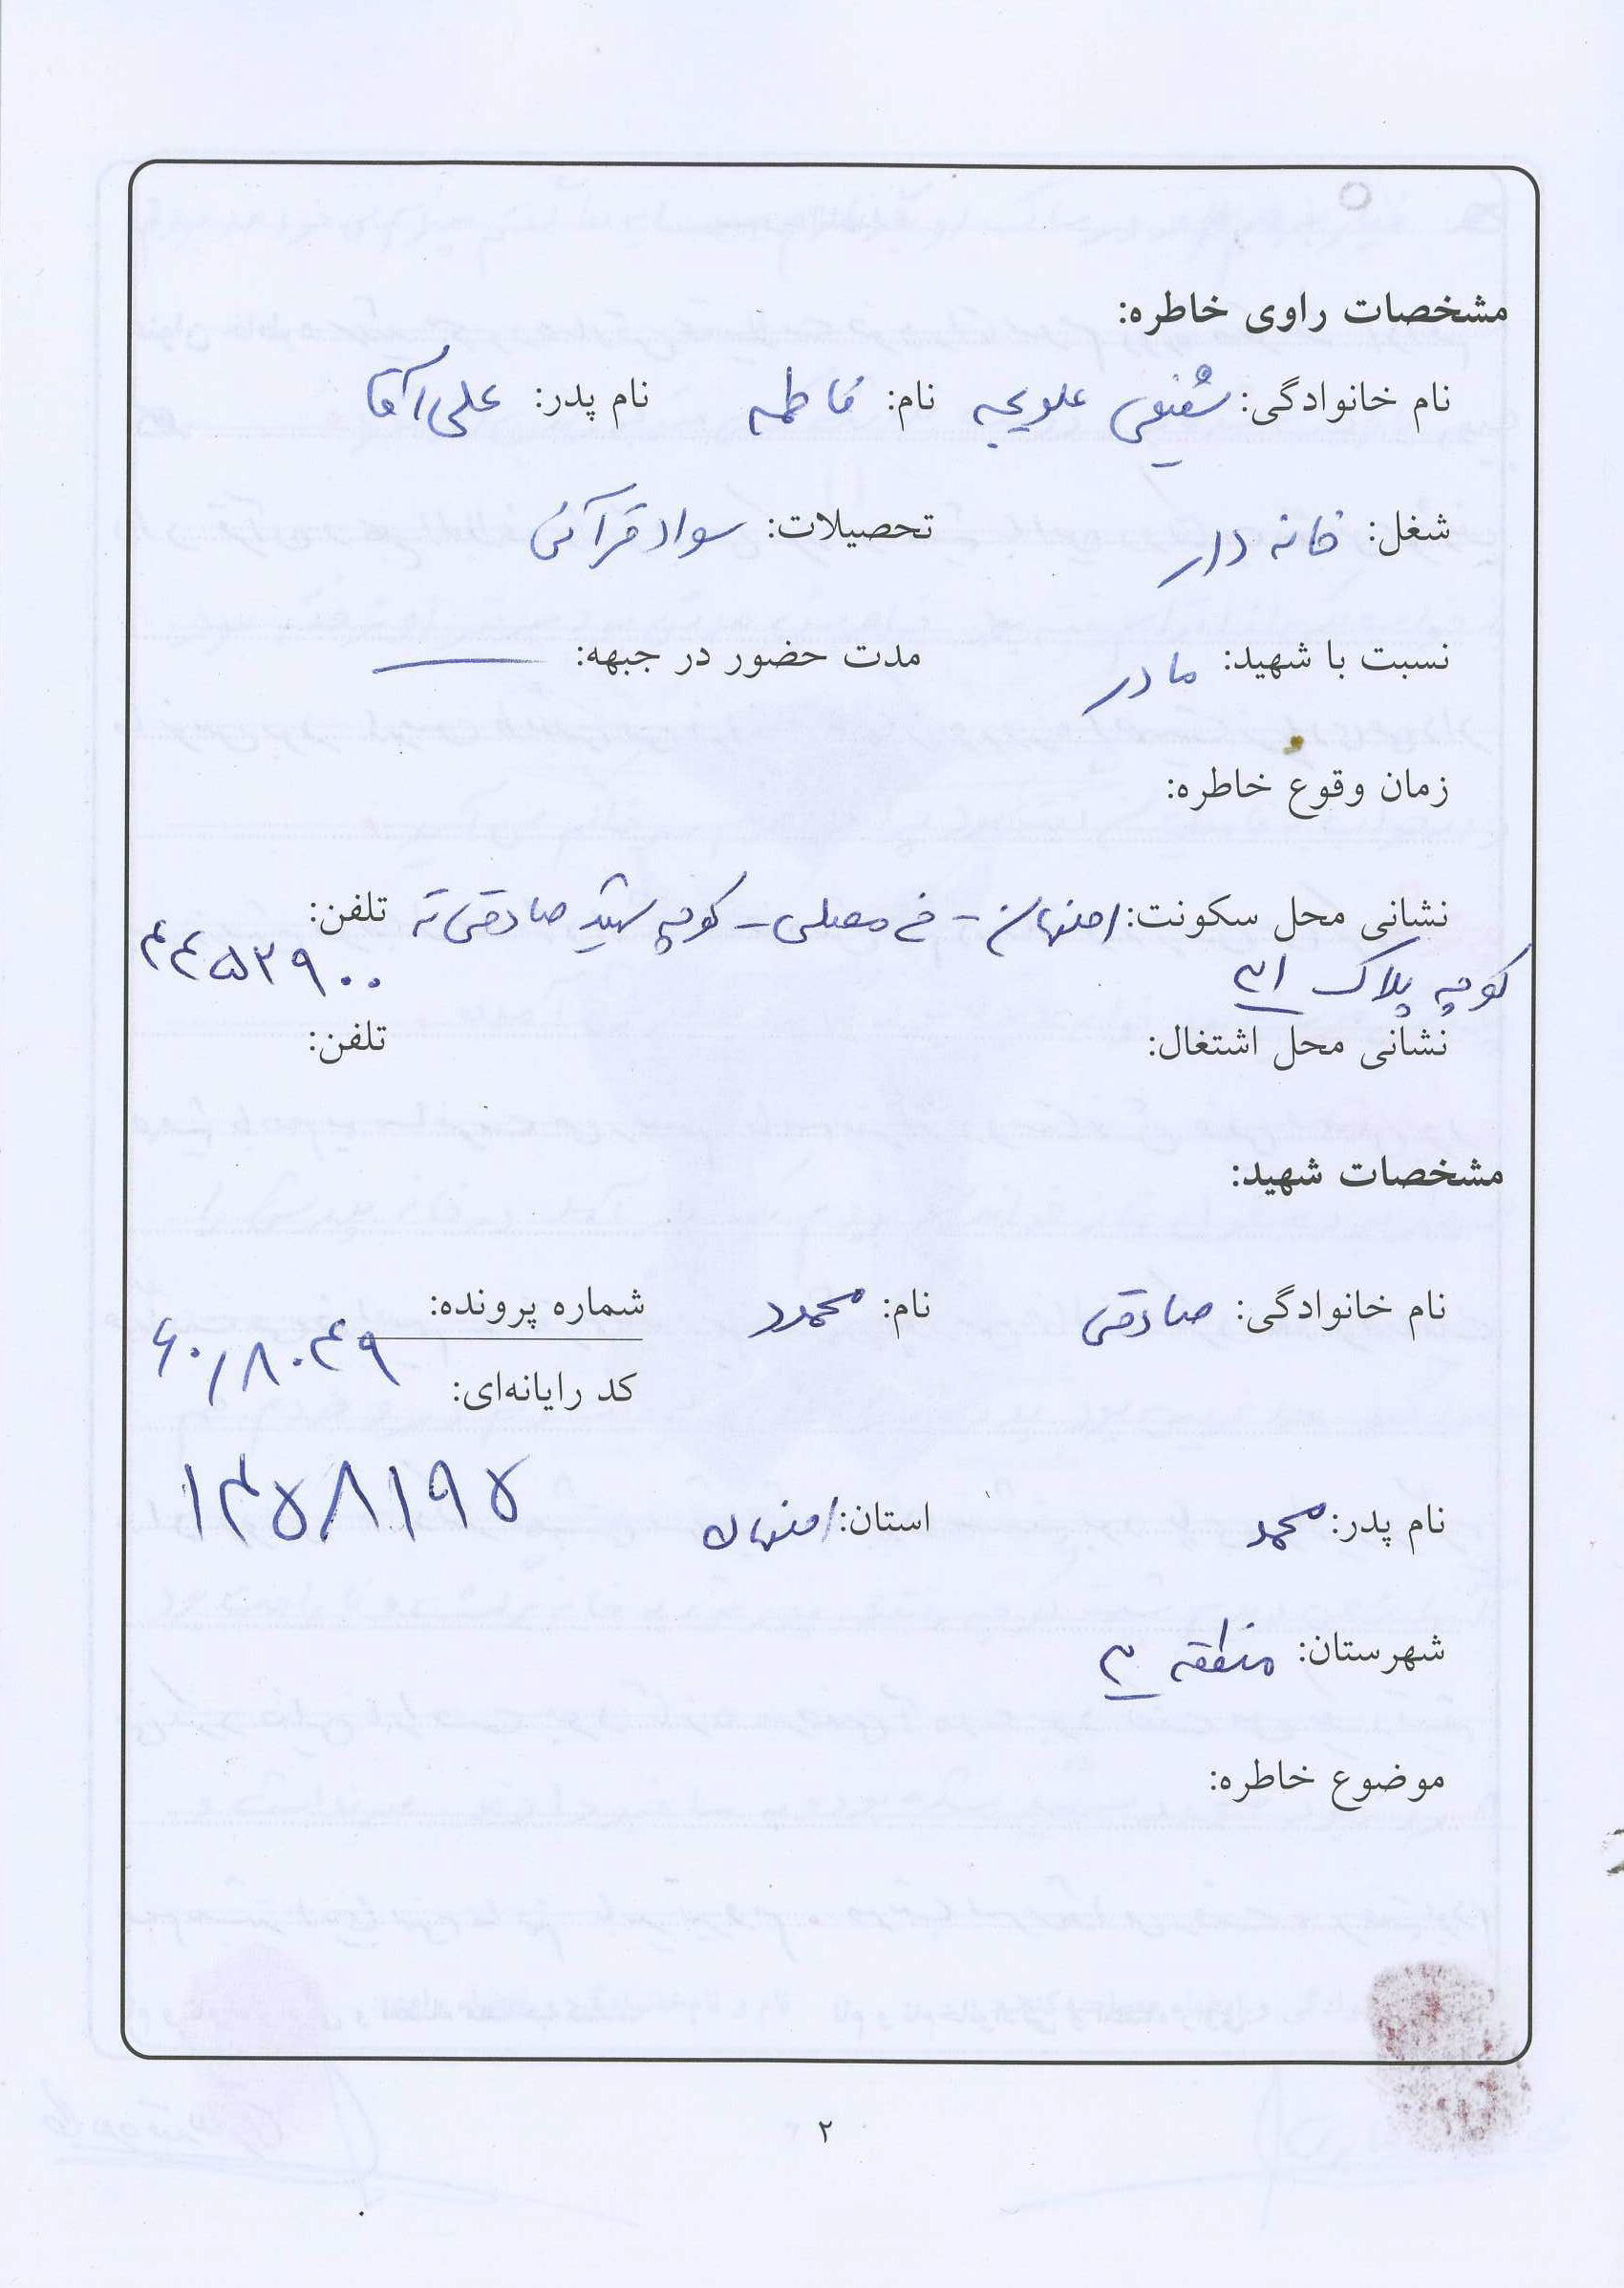 مشخصات راوی خاطره:
نام خانوادگی: شفیعی علویجه نام: فاطمه نام پدر: علی آقا
شغل: خانه دار تحصیلات: سواد قرآنی
نسبت با شهید: مادر مدت حضور در جبهه: ـــــ
زمان وقوع خاطره:
نشانی محل سکونت: اصفهان - خ مصلی - کوچه شهید صادقی ته تلفن:
کوچه پلاک ۳۱ ۴۴۵۲۹۰۰
نشانی محل اشتغال: تلفن:
مشخصات شهید:
نام خانوادگی: صادقی نام: محمود شماره پرونده:
۶۰/۸۰۴۹
کد رایانه‌ای:
نام پدر: محمد استان: اصفهان ۱۴۵۸۱۹۵
شهرستان: منطقه ۳
موضوع خاطره:
۲